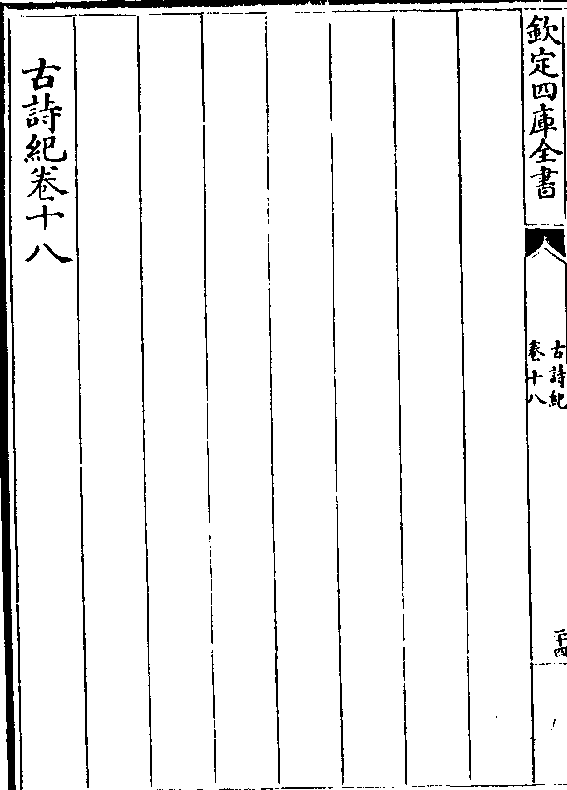 欽定四庫全書
古詩紀
卷十八
二十四
古詩紀卷十八